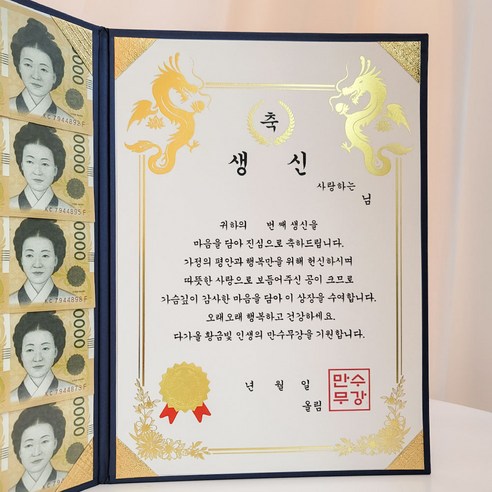 축
생 신
사랑하는
님
귀하의 번 째 생신을
마음을 담아 진심으로 축하드립니다.
가정의 평안과 행복만을 위해 헌신하시며
따뜻한 사랑으로 보듬어주신 공이 크므로
가슴깊이 감사한 마음을 담아 이 상장을 수여합니다.
오래오래 행복하고 건강하세요.
다가올 황금빛 인생의 만수무강을 기원합니다.
년 월 일
올림
만수
무강
0000
0000
0000
0000
0000